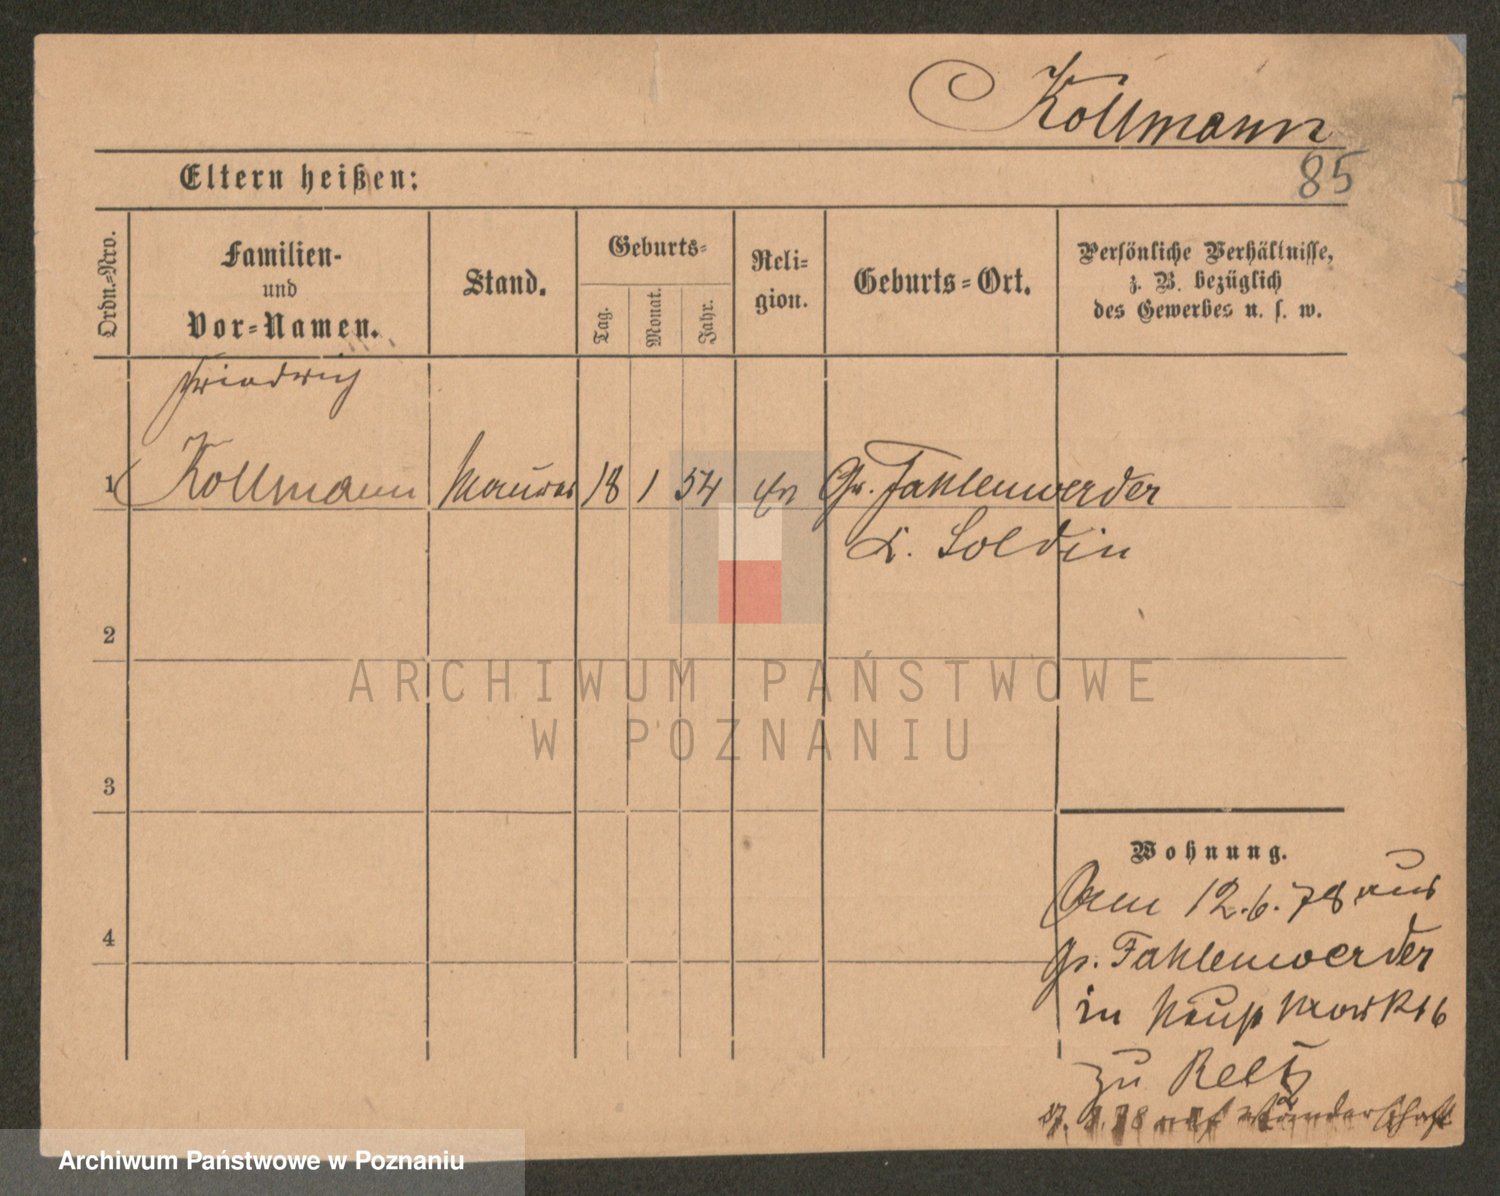 Kollmann
85
Eltern heißen:
Ordn.-Nro.
Familien-
und
Vor-Namen.
Stand.
Geburts-
Tag.
Monat.
Jahr.
Reli-
gion.
Geburts-Ort.
Persönliche Verhältnisse,
z. B. bezüglich
des Gewerbes u. s. w.
Friedrich
1 Kollmann Maurer 18 1 54 ev Gr. Fahlenwerder
K. Soldin
2
ARCHIWUM PAŃSTWOWE
W POZNANIU
3
Wohnung.
Am 12.6.78 aus
4
Gr. Fahlenwerder
in Neust Markt 6
zu
78 auf Wanderschaft
Archiwum Państwowe w Poznaniu